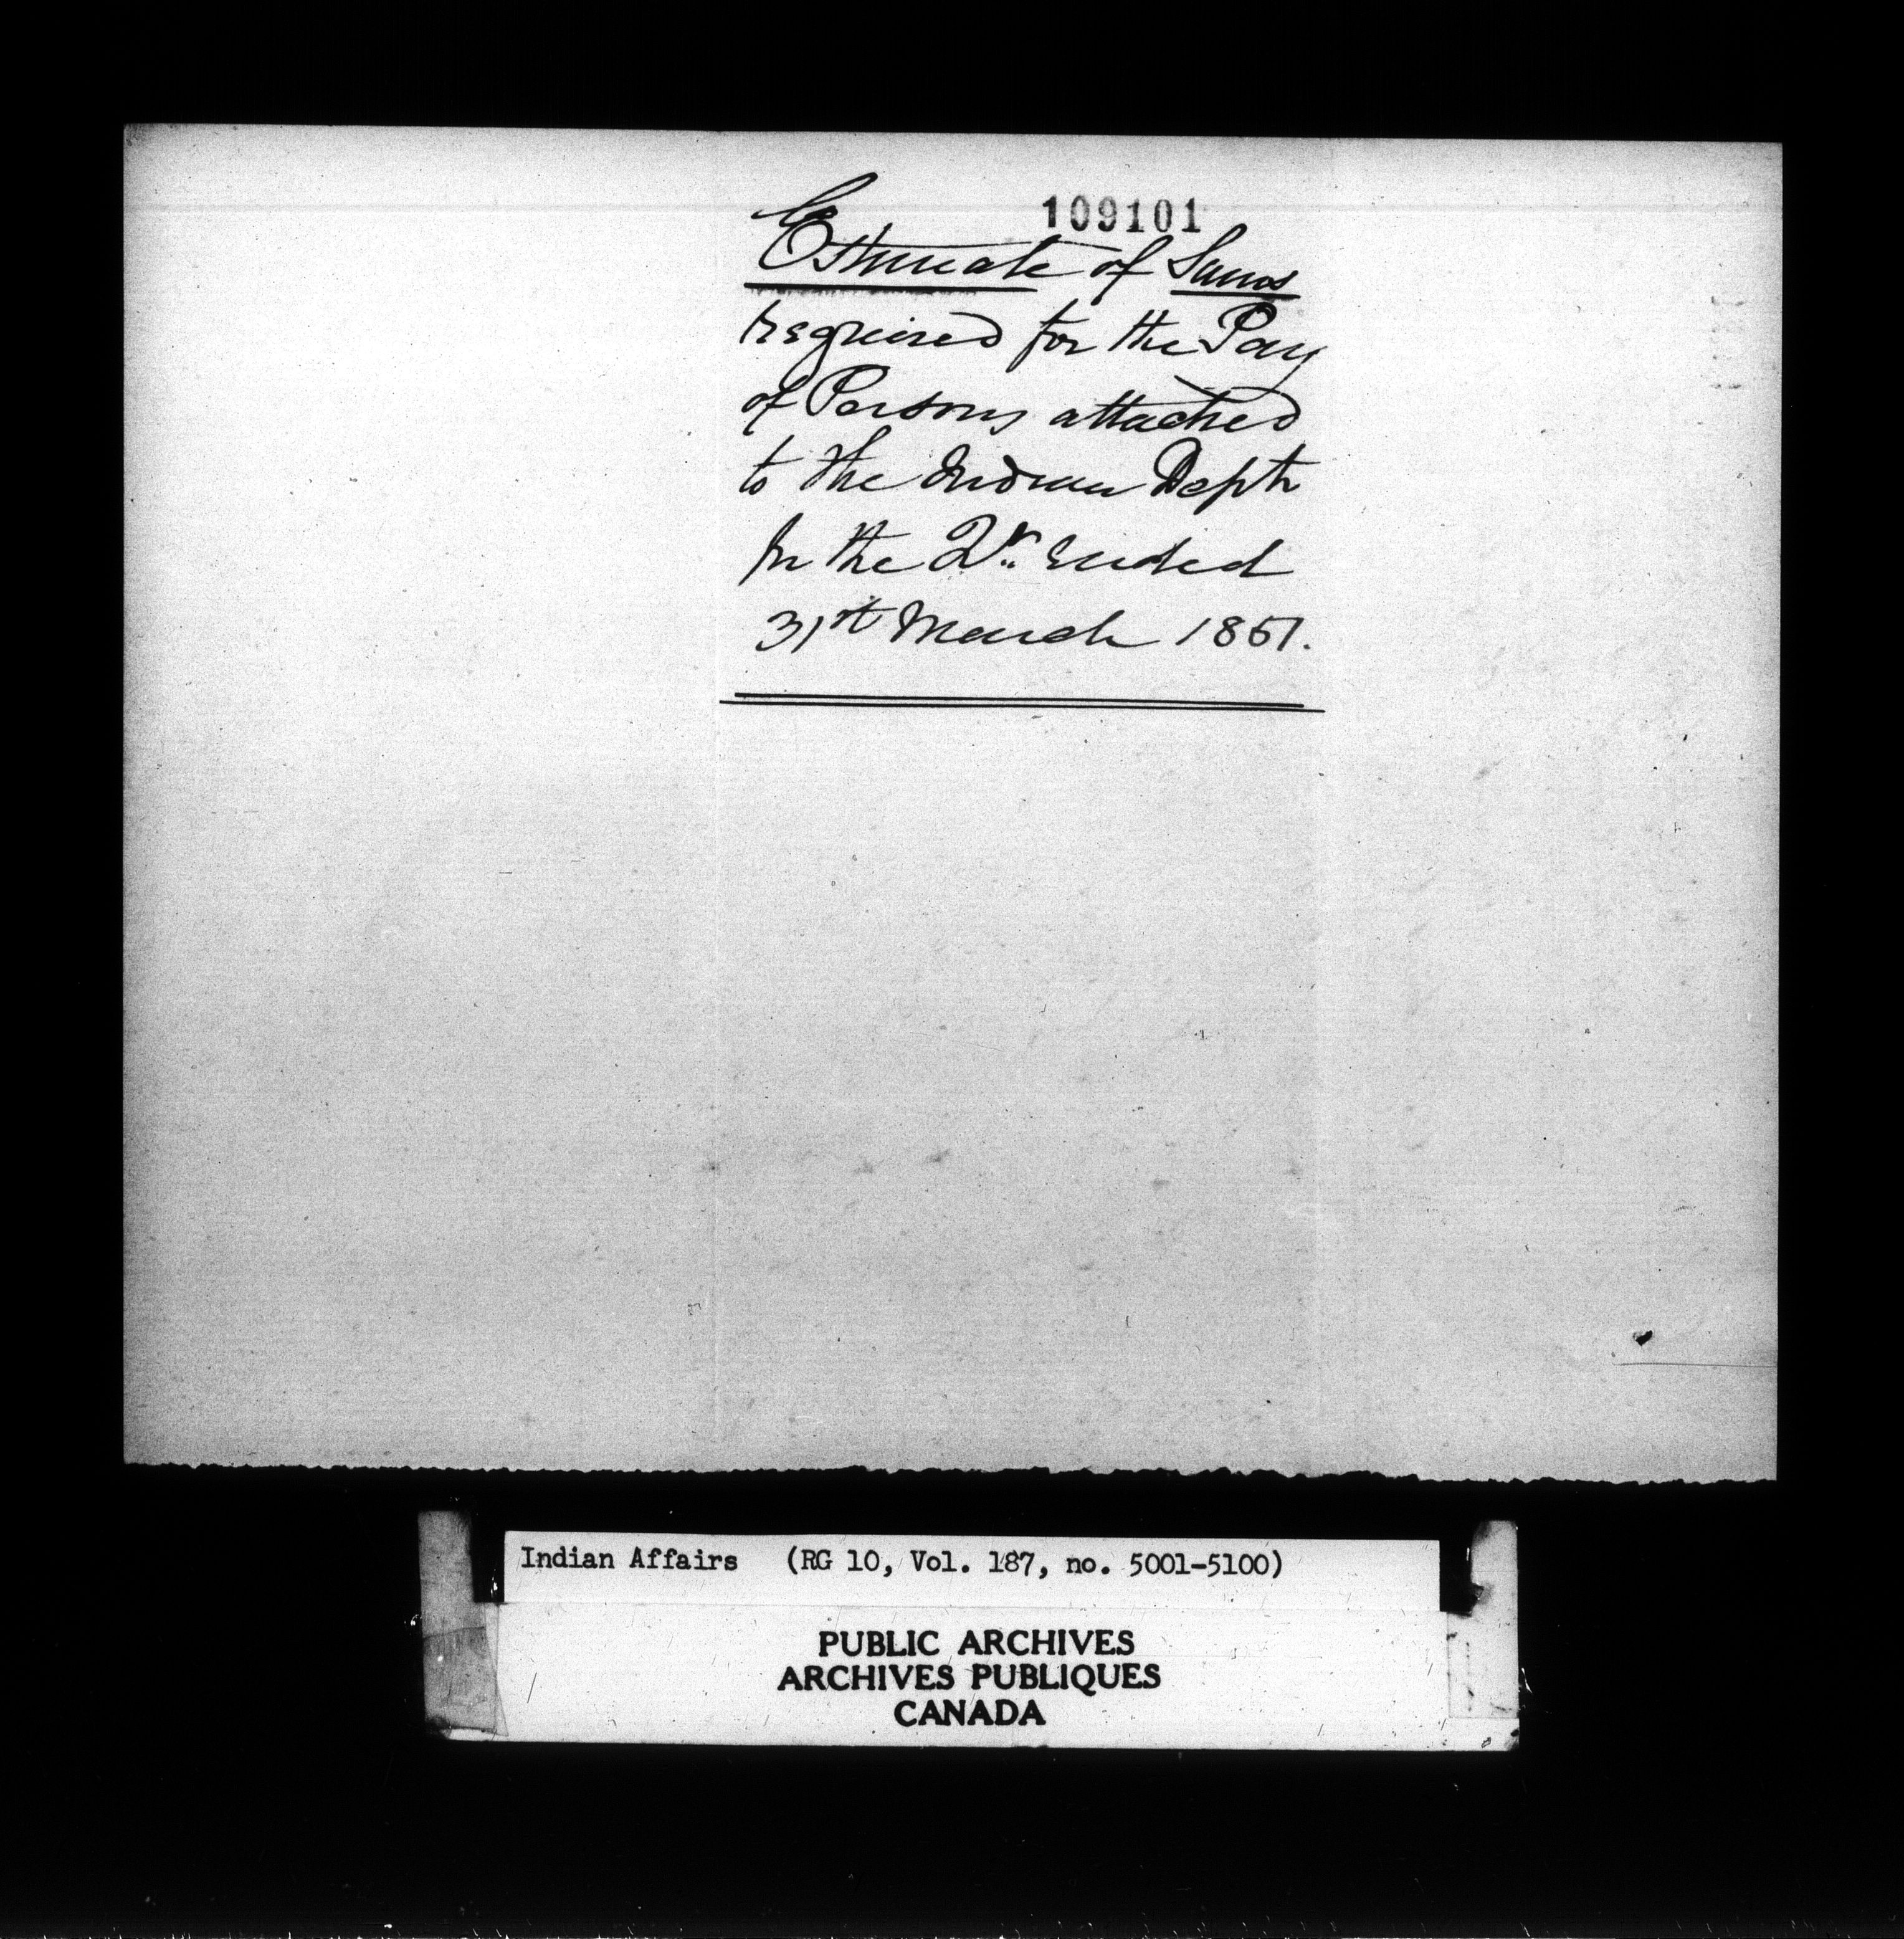 109101
Estimate of Sums
required for the Pay
of Persons attached
to the Indian Dept
for the Qr. ended
31st March 1851.
Indian Affairs (RG 10, Vol. 187, no. 5001-5100)
PUBLIC ARCHIVES
ARCHIVES PUBLIQUES
CANADA